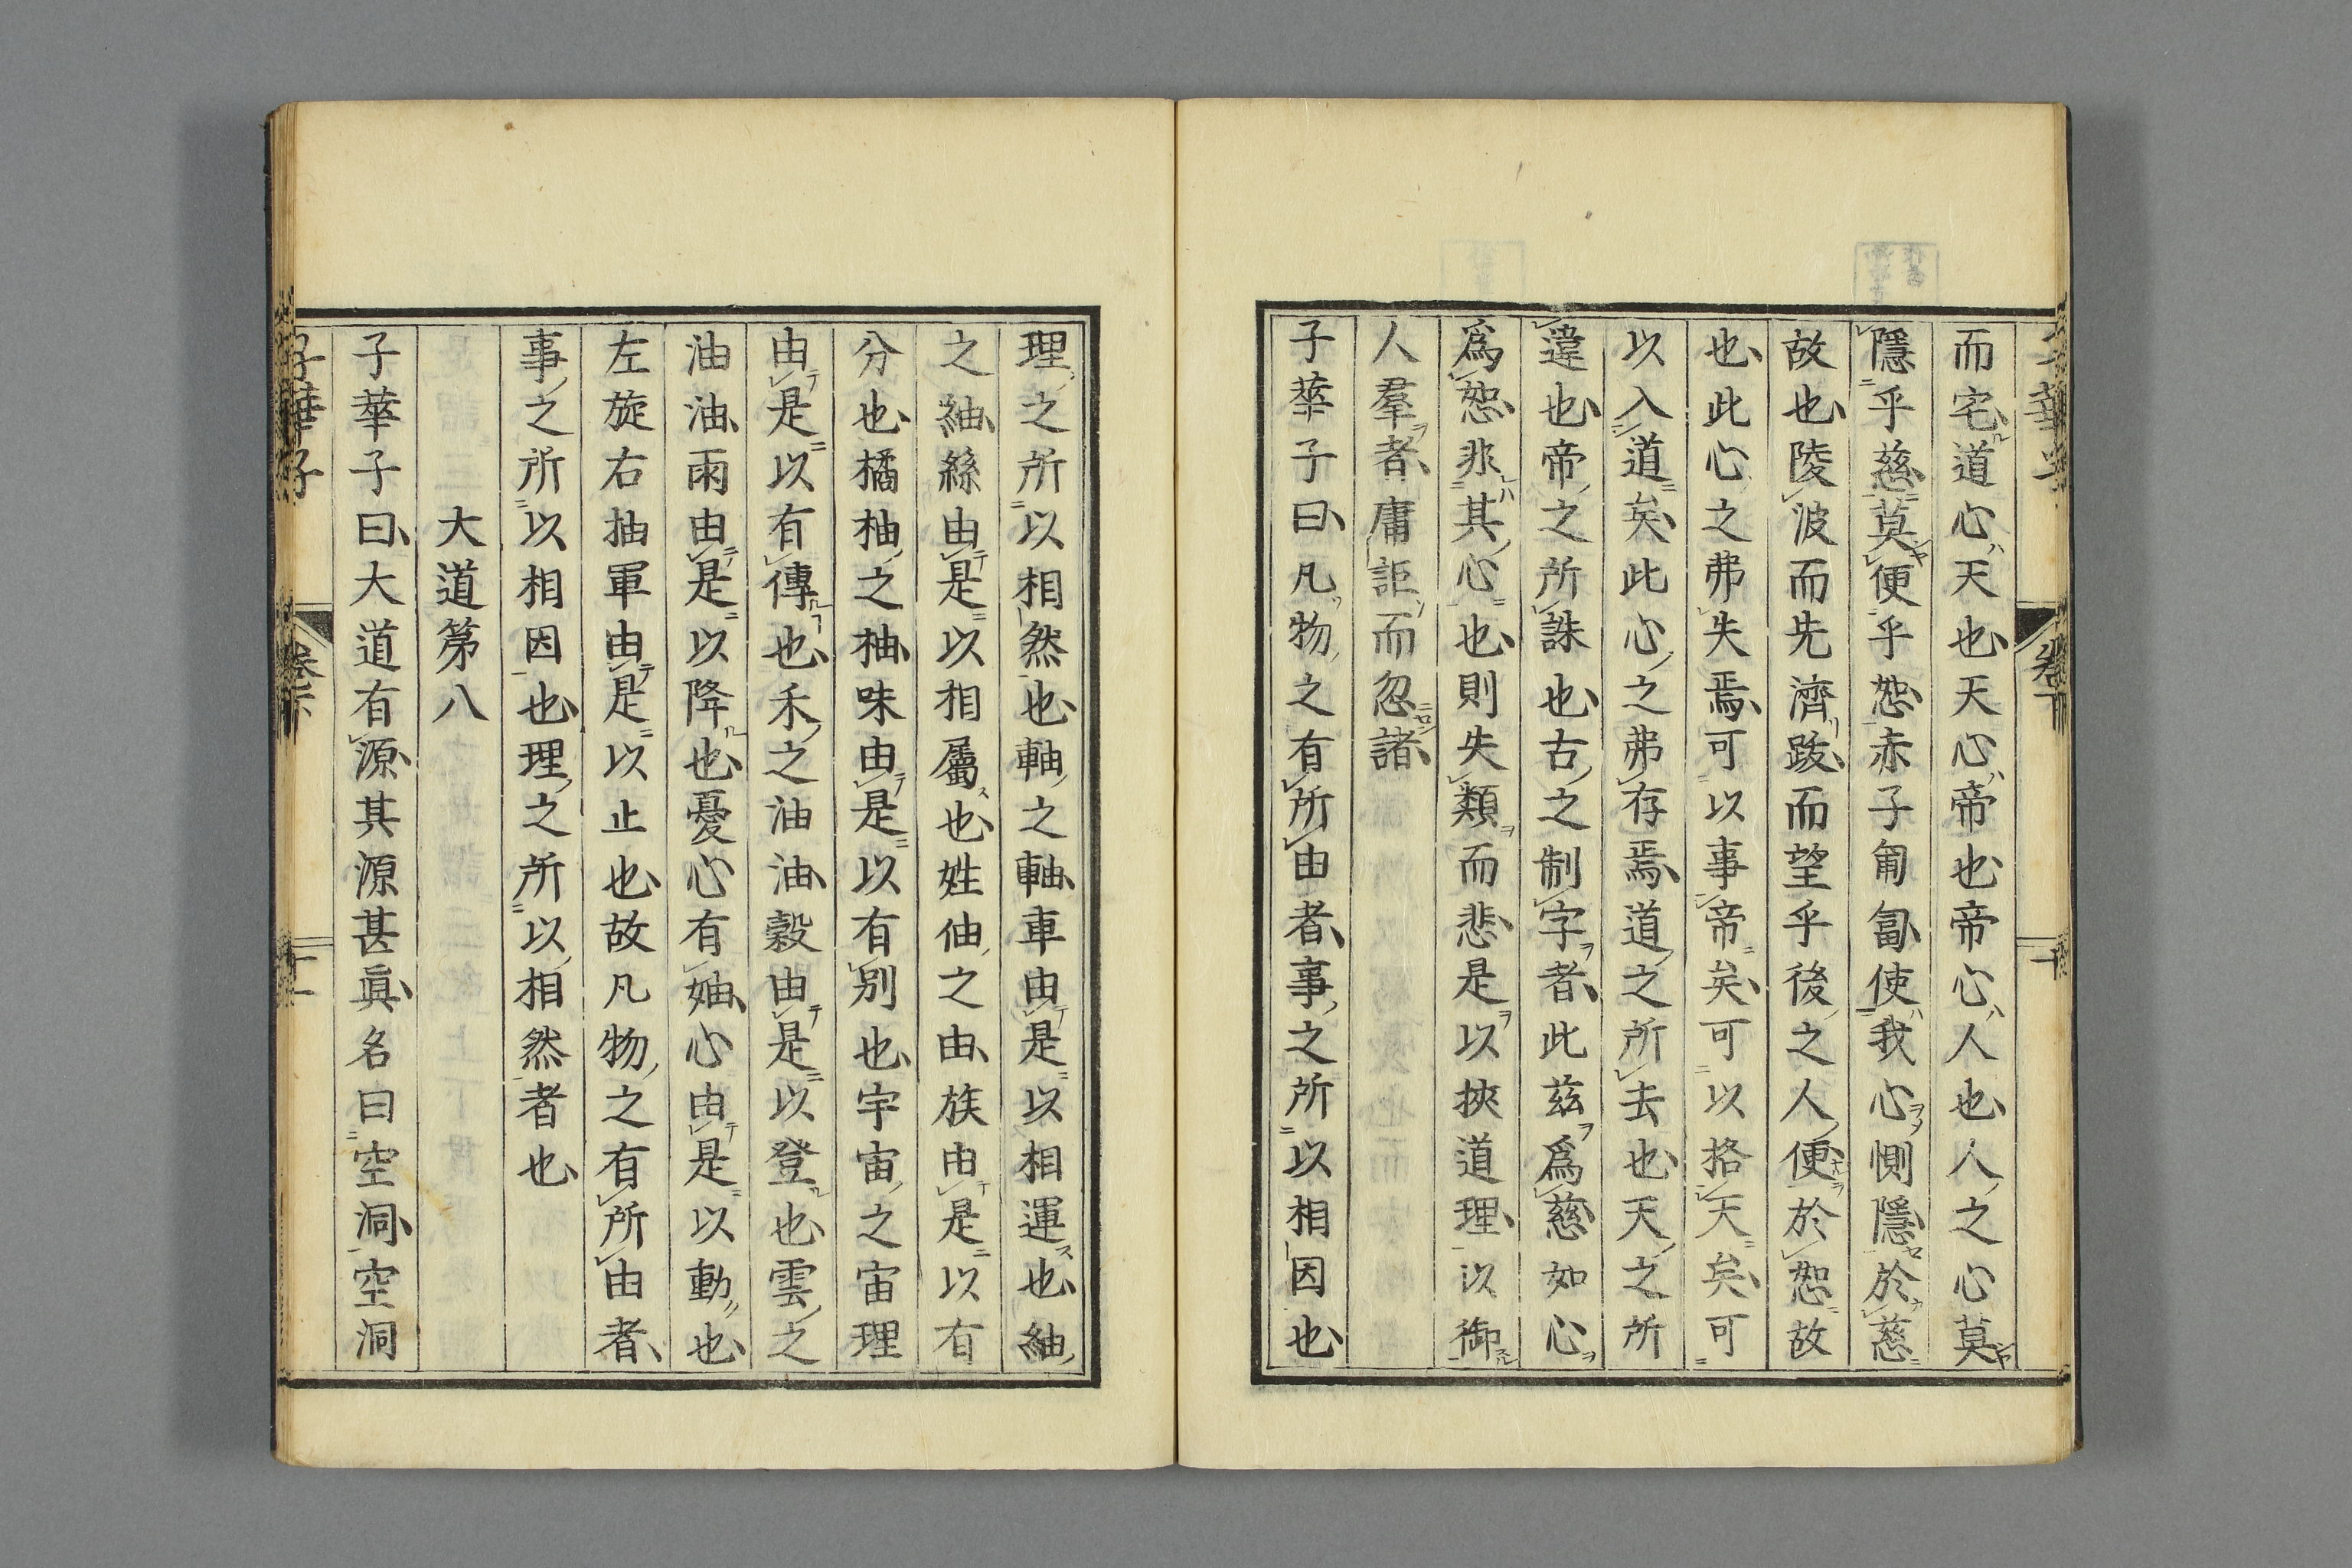 而宅道心天也天心帝也帝心人也人之心莫
隱乎慈莫便乎恕赤子匍匐使我心惻隱於慈
故也陵波而先濟跋而望乎後之人便於恕故
也此心之弗失焉可以事帝矣可以格天矣可
以入道矣此心之弗存焉道之所去也天之所
違也帝之所誅也古之制字者此茲爲慈如心
爲恕非其心也則失類而悲是以挾道理以御
人羣者庸詎而忽諸
子華子曰凡物之有所由者事之所以相因也
理之所以相然也軸之軸車由是以相運也紬
之紬絲由是以相屬也姓伷之由族由是以有
分也橘柚之柚味由是以有别也宇宙之宙理
由是以有傳也禾之油油穀由是以登也雲之
油油雨由是以降也憂心有妯心由是以動也
左旋右抽軍由是以止也故凡物之有所由者
事之所以相因也理之所以相然者也
大道第八
子華子曰大道有源其源甚眞名曰空洞空洞
子華子
卷下